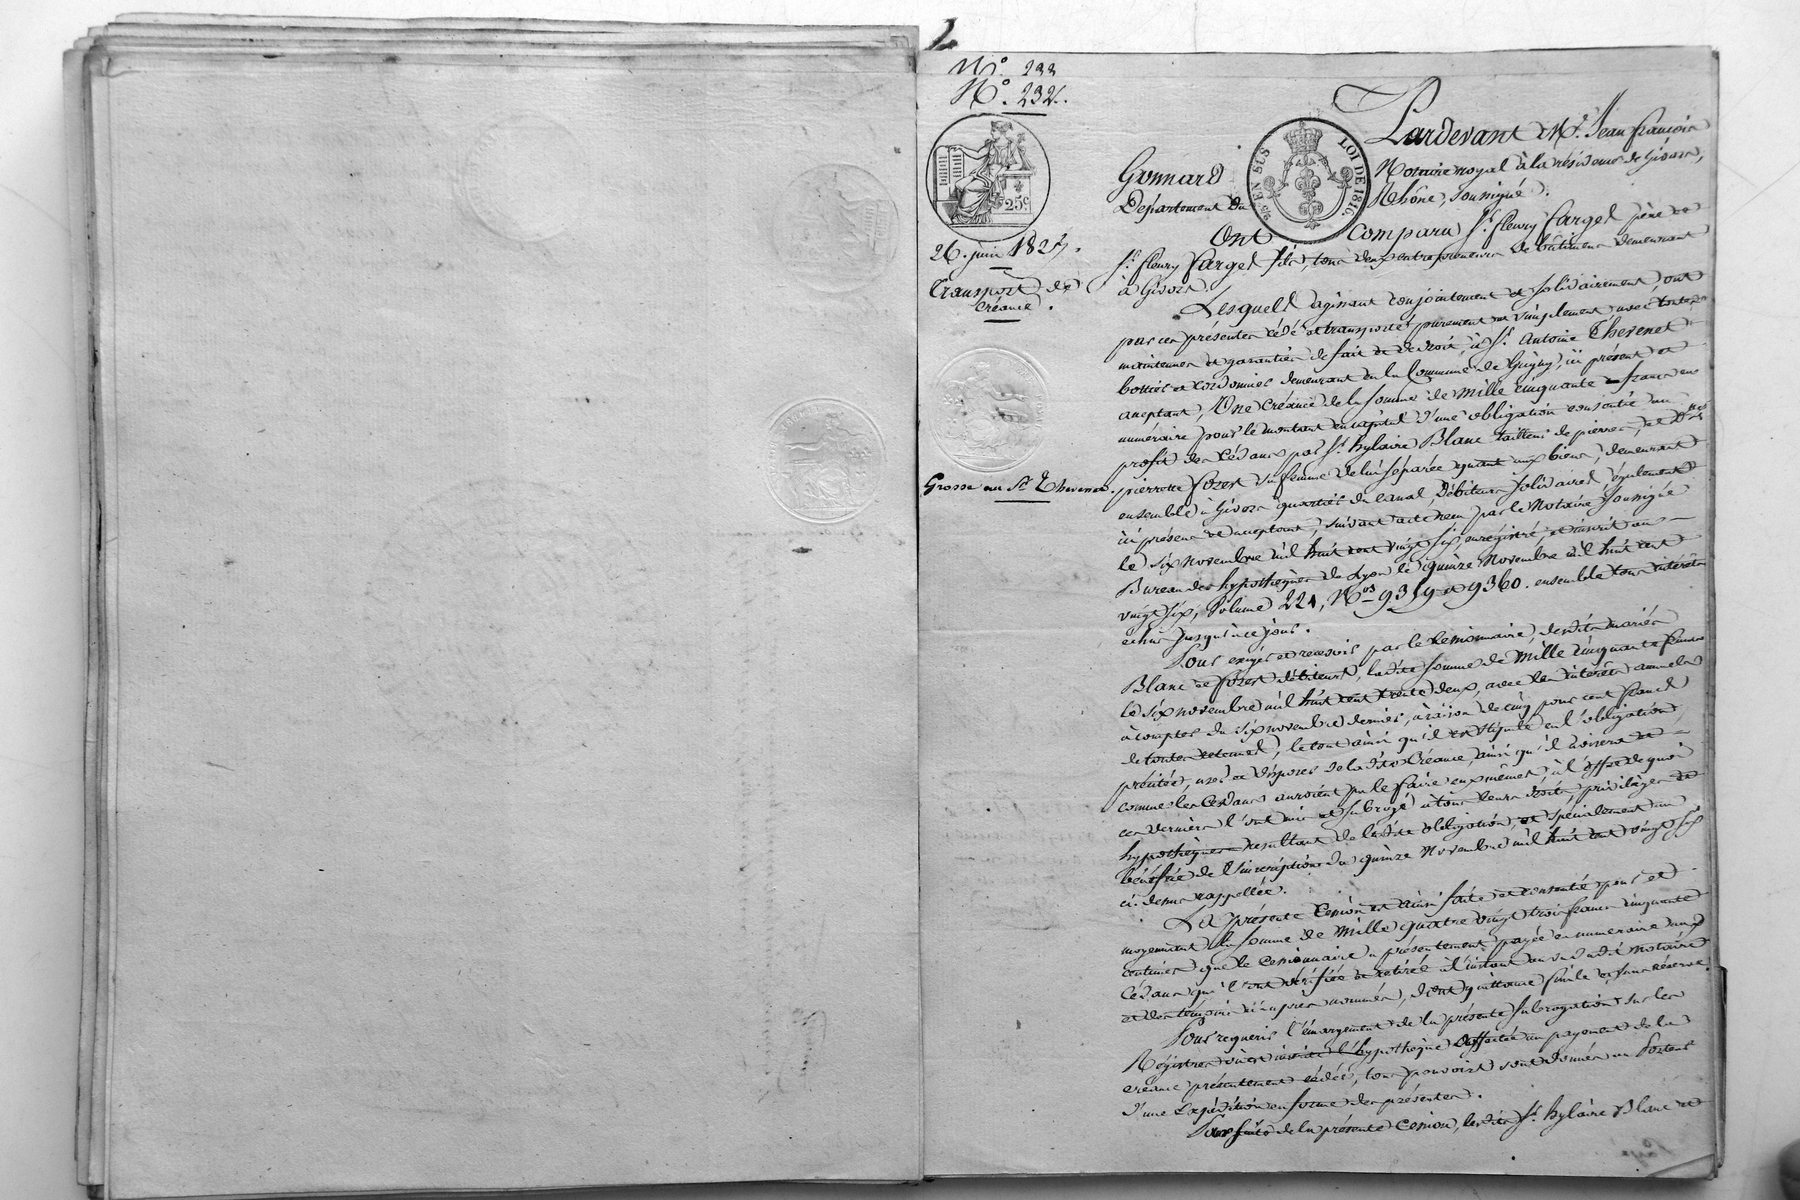 N.º 233
N.º 232.
25c
26. juin 1827.
Transport de
Créance.
Grosse au Sr Thevenet.
25 EN SUS LOI DE 1816.
Pardevant Me. Jean françois
Gonnard Notaire royal à la résidence de Givors,
Département du Rhône, soussigné.
Ont comparu Sr. fleury farget père et
Sr. fleury farget fils, tous deux entrepreneurs de bâtimens demeurant
à Givors.
Lesquels agissant conjointement et solidairement, ont
par ces présentes cédé et transporté purement et simplement avec toutes
maintenues et garanties de fait et de droit, à Sr. Antoine Thevenet
bottier et cordonnier demeurant en la Commune de Grigny, ici présent et
acceptant, Une Créance de la somme de Mille cinquante francs en
numéraire pour le montant en capital d'une obligation consentie au
profit des Cédans par Sr. hylaire Blanc tailleur de pierres, et De
pierrette fozer sa femme de lui séparée quant aux biens, demeurant
ensemble à Givors quartier du canal, Débiteurs solidaires, également
ici présens et acceptant, suivant acte reçu par le Notaire soussigné
le six novembre mil huit cent vingt six, enregistré, et inscrit au
Bureau des hypothèques de Lyon le quinze Novembre mil huit cent
vingt six, Volume 221, Nos 9359 et 9360. ensemble tous intérêts
échus jusqu'à ce jour.
Pour exiger et recevoir par le Cessionnaire, desdits mariés
Blanc et fozer débiteurs, ladite somme de Mille cinquante francs
le six novembre mil huit cent trente deux, avec les intérêts annuels
à compter du six novembre dernier, à raison de cinq pour cent franch
de toutes retenues, le tout ainsi qu'il est stipulé en l'obligation
précitée, user et disposer de ladite Créance ainsi qu'il avisera et
comme les Cédans auroient pu le faire eux mêmes, à l'effet de quoi
ces derniers l'ont mis et subrogé à tous leurs droits, privilèges et
hypothèques resultant de ladite obligation, et spécialement au
bénéfice de l'inscription du quinze Novembre mil huit cent vingt six
ci-dessus rappellée.
La présente Cession est ainsi faite et consentie pour et
moyennant la somme de Mille quatre vingt trois francs cinquante
centimes que le Cessionnaire a présentement payée en numéraire aux
Cédans qui l'ont vérifiée et retirée à l'instant au vu dudit Notaire
et des témoins ci après nommés, dont quittance finale et sans réserve.
Pour requerir l'émargement de la présente subrogation sur les
Régistres où est inscrite l'hypothèque affectée au payement de la
créance présentement cédée, tous pouvoirs sont donnés au Porteur
d'une Expédition en forme des présentes.
de la présente Cession, lesdits Sr. hylaire Blanc et